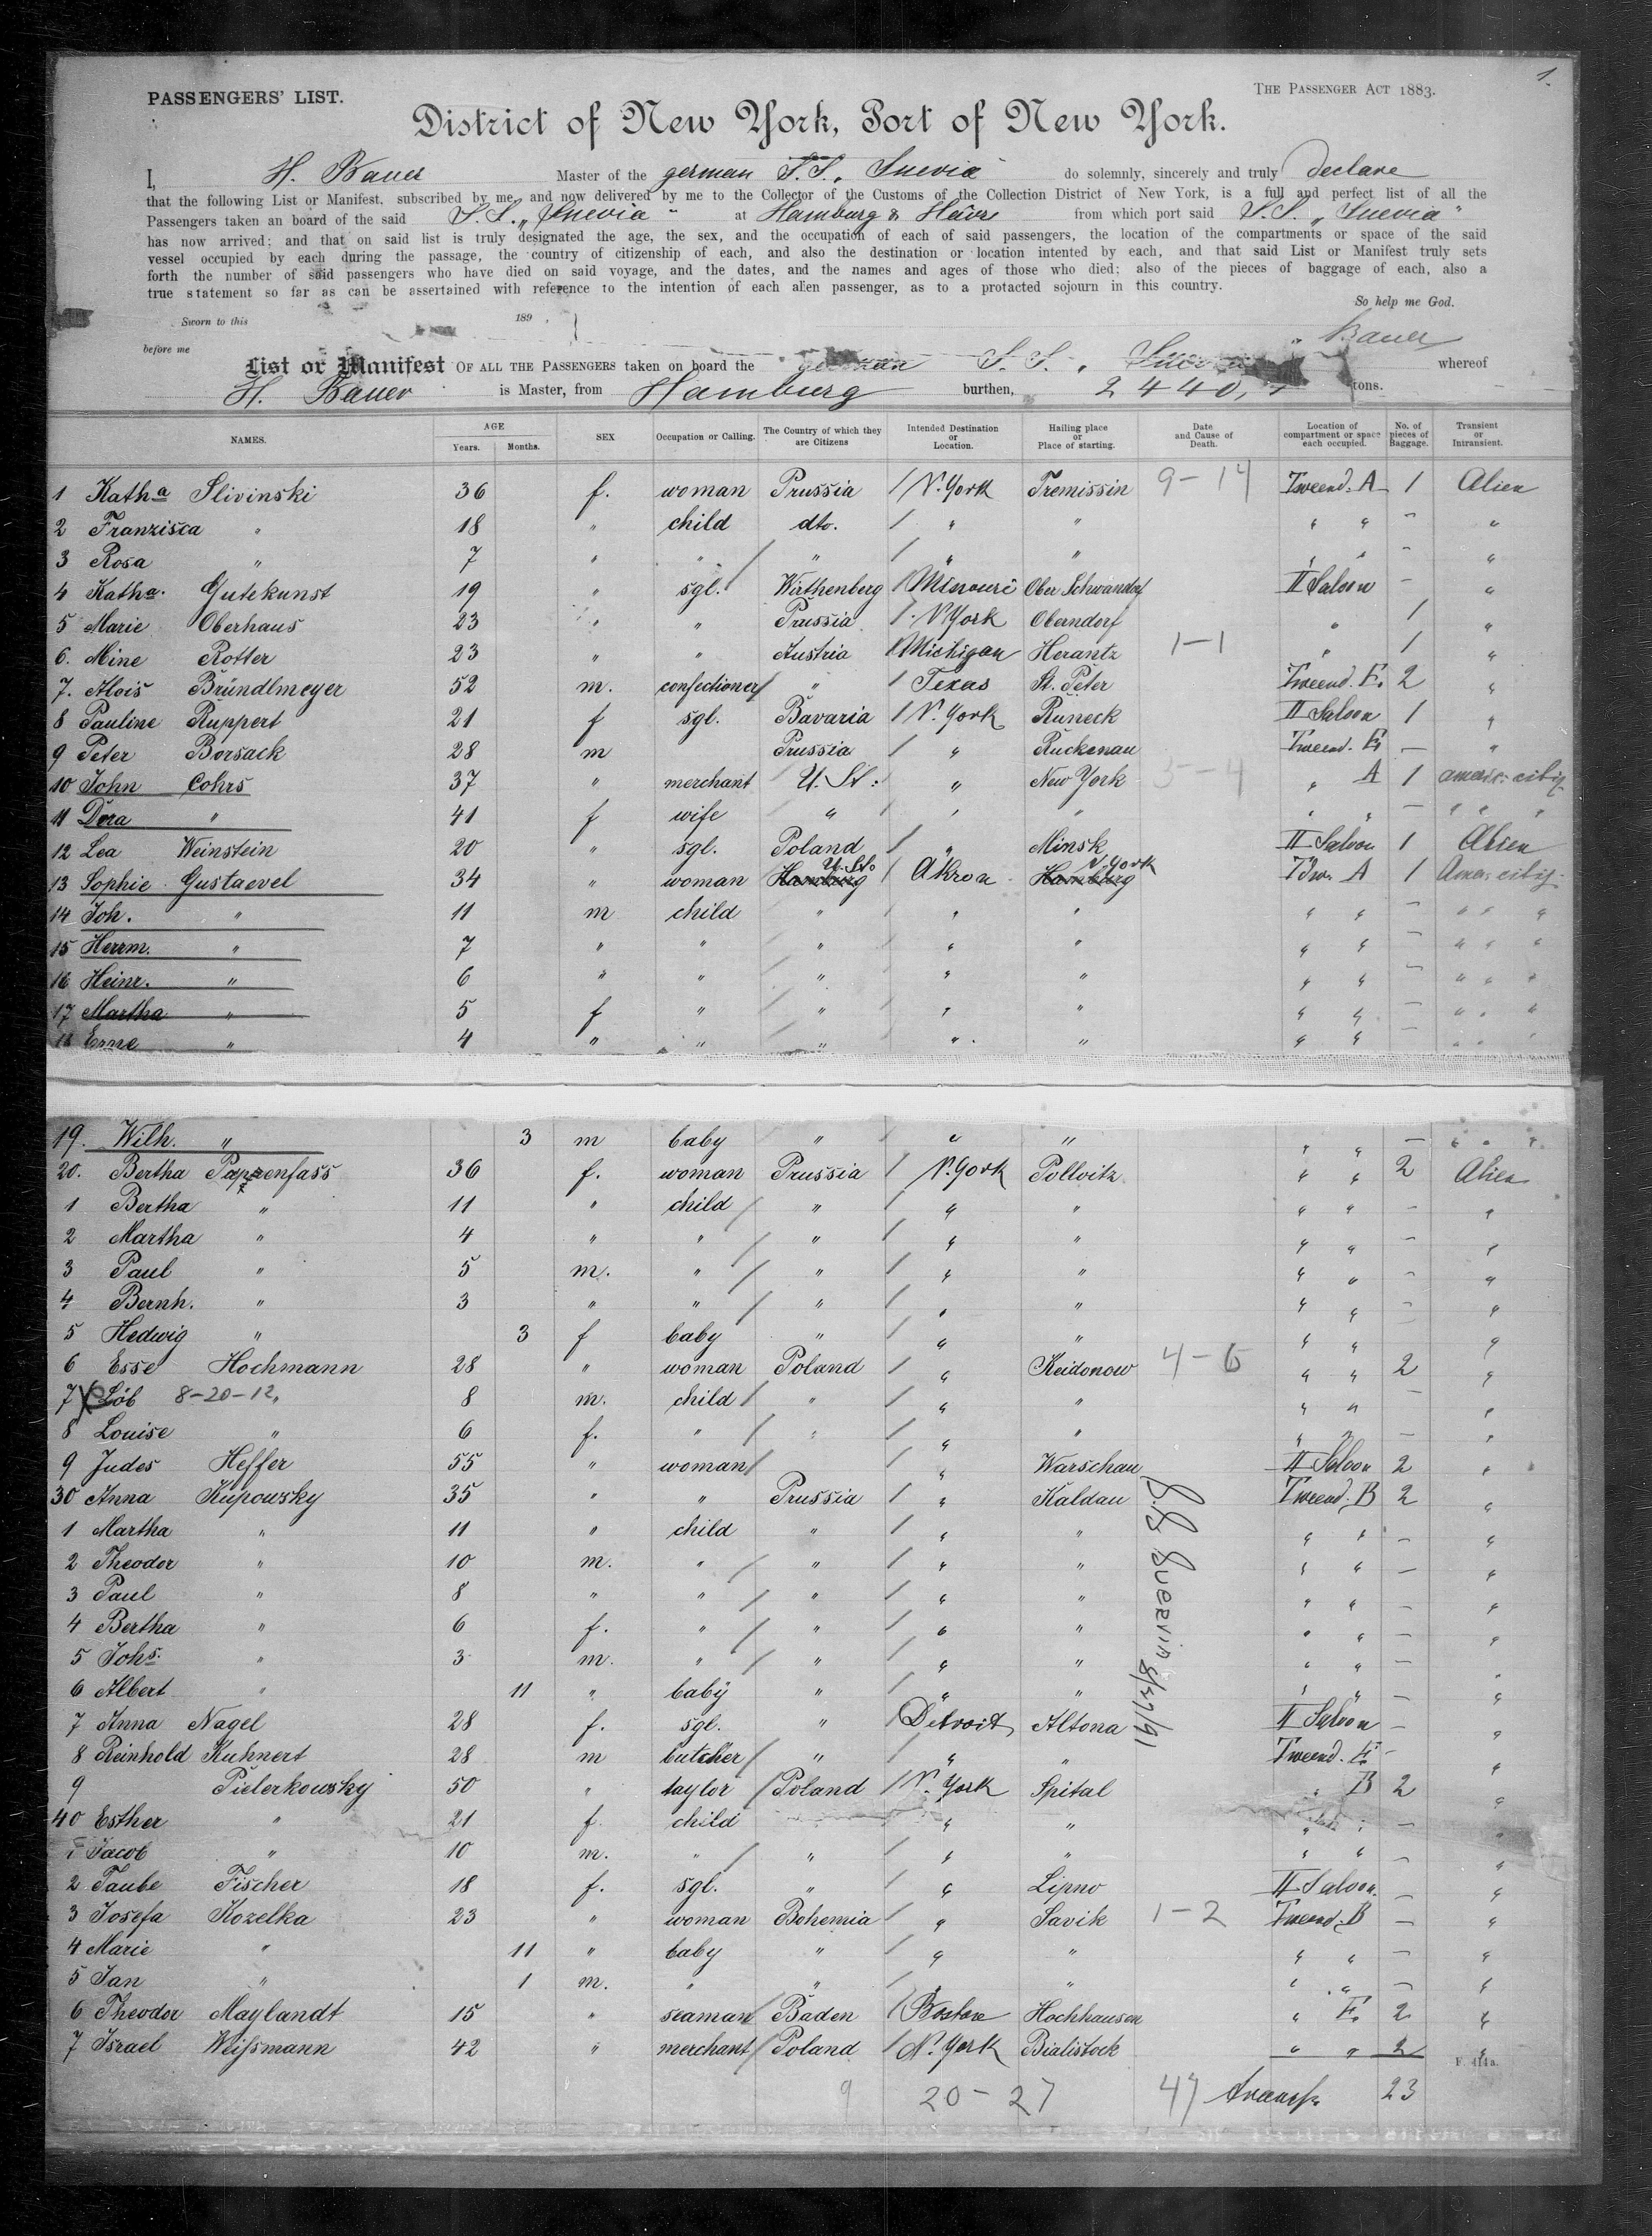 1.
PASSENGERS' LIST.
THE PASSENGER ACT 1883.
District of New York, Port of New York.
I, H. Bauer Master of the german S.S. „Suevia" do solemnly, sincerely and truly declare
that the following List or Manifest, subscribed by me, and now delivered by me to the Collector of the Customs of the Collection District of New York, is a full and perfect list of all the
Passengers taken an board of the said S.S. „Suevia" at Hamburg & Havre from which port said S.S. „Suevia"
has now arrived; and that on said list is truly designated the age, the sex, and the occupation of each of said passengers, the location of the compartments or space of the said
vessel occupied by each during the passage, the country of citizenship of each, and also the destination or location intented by each, and that said List or Manifest truly sets
forth the number of said passengers who have died on said voyage, and the dates, and the names and ages of those who died; also of the pieces of baggage of each, also a
true statement so far as can be assertained with reference to the intention of each alien passenger, as to a protacted sojourn in this country.
So help me God.
Sworn to this 189
Bauer
before me
List or Manifest OF ALL THE PASSENGERS taken on board the german S.S. „Suevia whereof
H. Bauer is Master, from Hamburg burthen, 2440, tons.
NAMES. AGE Years. Months. SEX Occupation or Calling. The Country of which they are Citizens Intended Destination or Location. Hailing place or Place of starting. Date and Cause of Death. Location of compartment or space each occupied. No. of pieces of Baggage. Transient or Intransient.
1 Katha Slivinski 36 f. woman Prussia / N. York Tremissin 9-14 Tweend. A 1 Alien
2 Franzisca " 18 " child dto. / " " " " - "
3 Rosa " 7 " " / " / " " " " - "
4 Katha. Gutekunst 19 " sgl. Wirthenberg / Missouri Ober Schwandorf II Saloon - "
5 Marie Oberhaus 23 " " Prussia / N York Oberndorf " 1 "
6. Mine Rotter 23 " " Austria / Michigan Herantz 1-1 " 1 "
7. Alois Bründlmeyer 52 m. confectioner / " / Texas St. Peter Tweend. E. 2 "
8 Pauline Ruppert 21 f sgl. Bavaria / N. York Runeck II Saloon 1 "
9 Peter Borsack 28 m Prussia / " Ruckenau Tweend. E - "
10 John Cohrs 37 " merchant / U. St: / " New York 3-4 " A 1 americ: citiz.
11 Dora " 41 f wife " " " " " - " " "
12 Lea Weinstein 20 " sgl. Poland " Minsk II Saloon 1 Alien
13 Sophie Gustaevel 34 " woman Hamburg U. Sts / Akron Hamburg N. York Tdw. A 1 Amer. citiz.
14 Joh. " 11 m child " " " " " - " " "
15 Herrm. " 7 " " " " " " " - " " "
16 Heinr. " 6 " " " " " " " - " " "
17 Martha " 5 f " " " " " " - " " "
18 Erne " 4 " " " " " " " - " " "
19. Wilh. " 3 m baby " / " " " " - " " "
20. Bertha Papzenfass 36 f. woman Prussia / N. York Pollvitz " " 2 Alien
1 Bertha " 11 " child / " / " " " " - "
2 Martha " 4 " " / " / " " " " - "
3 Paul " 5 m. " / " / " " " " - "
4 Bernh. " 3 " " / " / " " " " - "
5 Hedwig " 3 f baby " / " " " " "
6 Esse Hochmann 28 " woman Poland / " Keidonow 4-6 " " 2 "
7 X Löb 8-20-12. 8 m. child / " " " " " - "
8 Louise " 6 f. " / " / " " " " - "
9 Judes Heffer 55 " woman / / " Warschau II Saloon 2 "
30 Anna Kupowsky 35 " " Prussia / " Kaldau Tweend. B 2 "
1 Martha " 11 " child " / " " " " - "
2 Theodor " 10 m. " / " / " " " " - "
3 Paul " 8 " " / " / " " " " - "
4 Bertha " 6 f. " / " / " " " " - "
5 Johs. " 3 m. " / " / " " " " - "
6 Albert " 11 " baby " / " " " " - "
7 Anna Nagel 28 f. sgl. " / Detroit Altona II Saloon - "
8 Reinhold Kuhnert 28 m butcher / " / " " Tweend. E - "
9 Pielerkowsky 50 " taylor / Poland / N. York Spital " B 2 "
40 Esther " 21 f. child " " " " - "
1 Jacob " 10 m. " / " / " " " " - "
2 Taube Fischer 18 f. sgl. " " Lipno II Saloon. - "
3 Josefa Kozelka 23 " woman Bohemia / " Savik 1-2 Tweend. B - "
4 Marie " 11 " baby " / " " " " - "
5 Jan " 1 m. " " / " " " - "
6 Theodor Maylandt 15 " seaman / Baden / Boston Hochhausen " E. 2 "
7 Israel Weissmann 42 " merchant / Poland / N. York Bialistock " " 2 "
F. 414a.
9 20-27 47 transf. 23